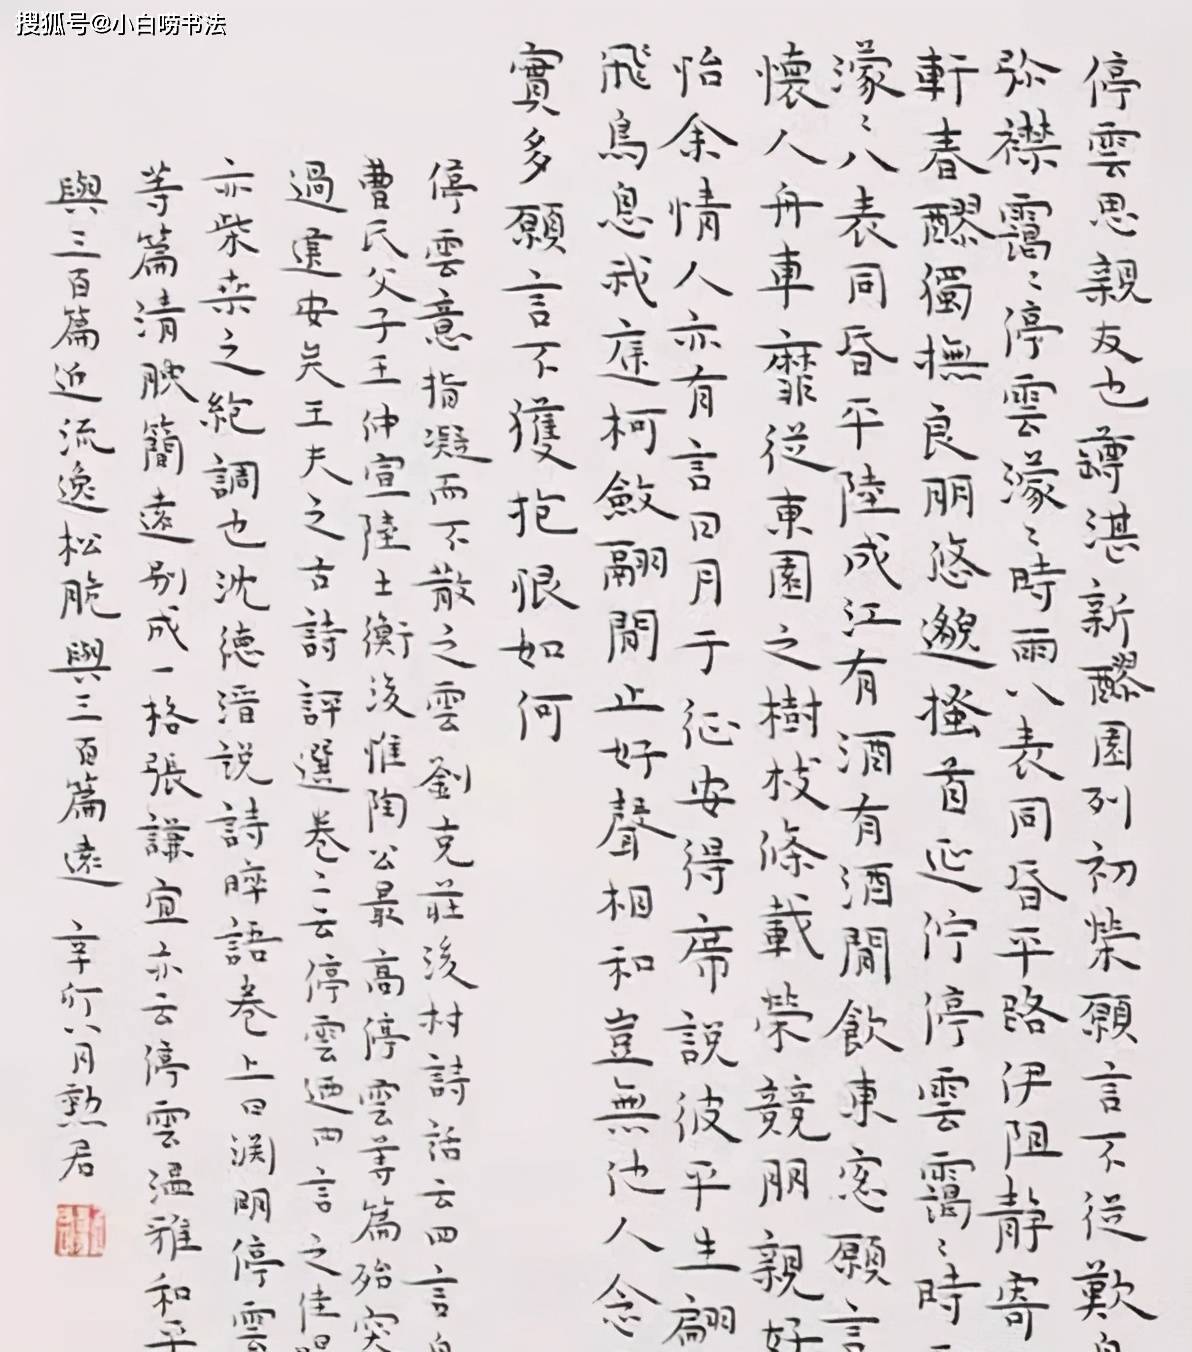 搜狐号@小白唠书法
停雲思親友也罇湛新醪園列初榮願言不從歎
弥襟靄〻停雲濛〻時雨八表同昏平路伊阻静寄
軒春醪獨撫良朋悠邈搔首延佇停雲靄〻時
濛〻八表同昏平陸成江有酒有酒閒飲東窓願言
懷人舟車靡從東園之樹枝條載榮競朋親好
怡余情人亦有言日月于征安得席說彼平生翩
飛鳥息我庭柯斂翮閒止好聲相和豈無他人念
實多願言不獲抱恨如何
停雲意指凝而不散之雲劉克莊後村詩話云四言
曹氏父子王仲宣陸士衡後惟陶公最高停雲等篇殆突
過建安矣王夫之古詩評選卷二云停雲廼四言之佳
亦柴桑之絕調也沈德潛說詩晬語卷上曰淵明停雲
等篇清腴簡遠別成一格張謙宜亦云停雲溫雅和平
與三百篇近流逸松脆與三百篇遠 辛卯八月勲君